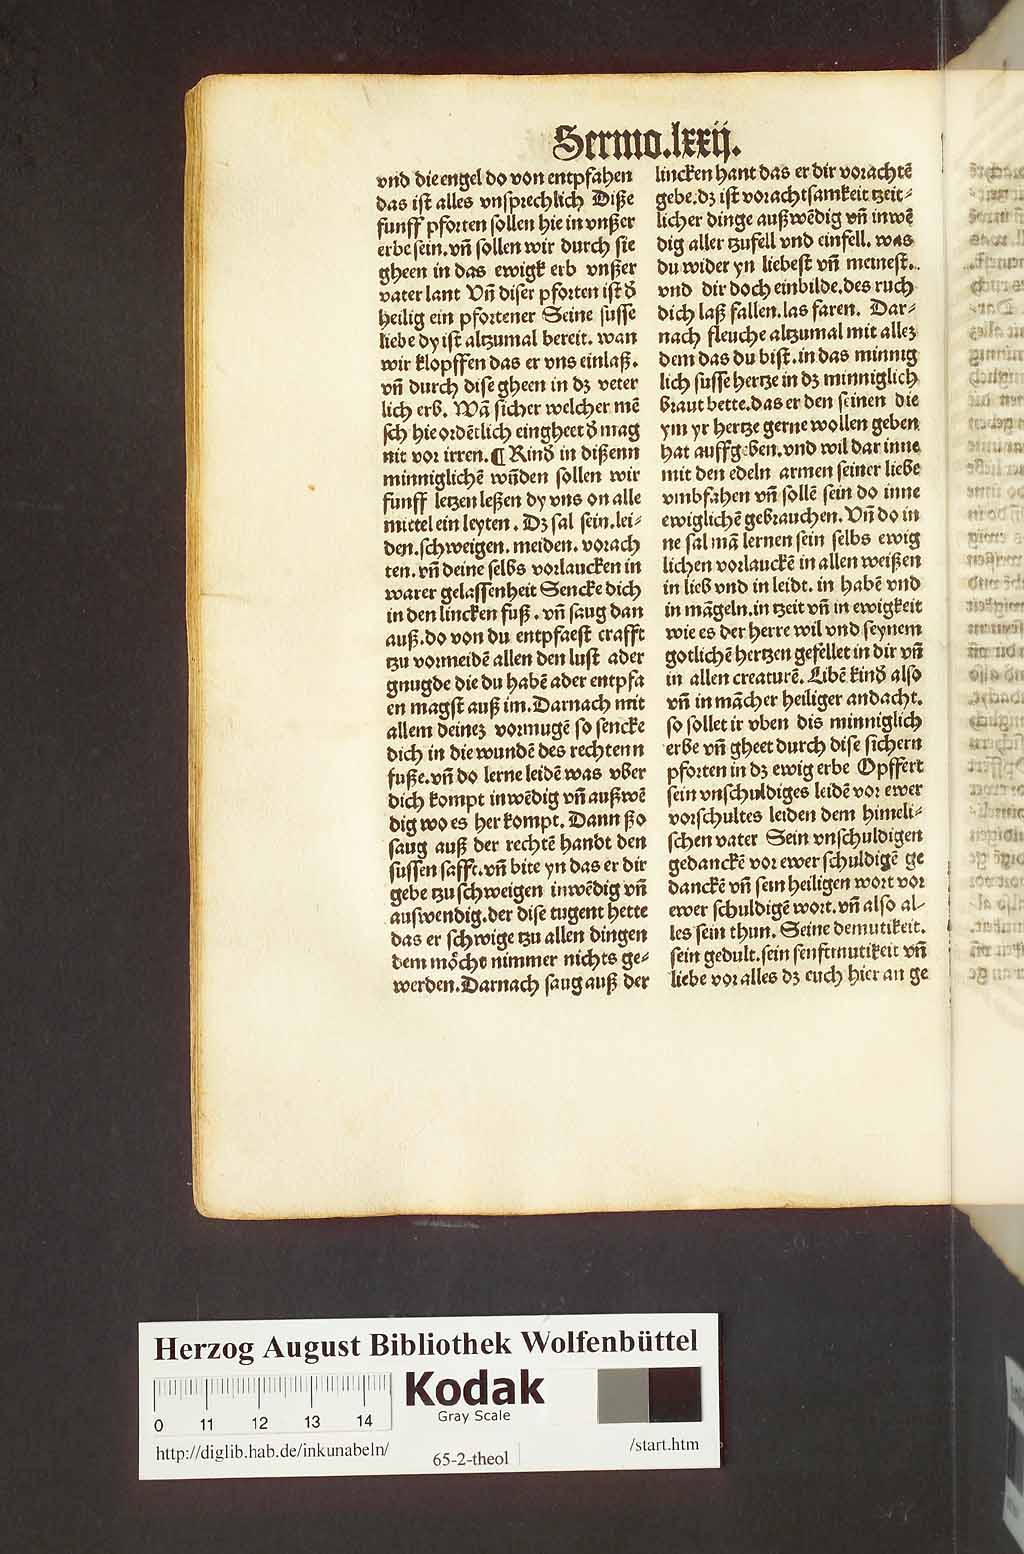 Sermo.lxxij.
vnd die engel do von entpfahen
das ist alles vnsprechlich Diße
funff pforten sollen hie in vnßer
erbe sein. vñ sollen wir durch sie
gheen in das ewigk erb vnßer
vater lant Vñ diser pforten ist d̕
heilig ein pfortener Seine susse
liebe dy ist altzumal bereit. wan
wir klopffen das er vns einlaß.
vñ durch dise gheen in dʒ veter
lich erb. Wã sicher welcher mẽ
sch hie ordẽtlich eingheet d̕ mag
nit vor irren. ¶ Rind̕ in dißenn
minniglichẽ wñden sollen wir
funff letzen leßen dy vns on alle
mittel ein leyten. Dʒ sal sein. lei⸗
den. schweigen. meiden. vorach
ten. vñ deine selbs vorlaucken in
warer gelassenheit Sencke dich
in den lincken fuß. vñ saug dan
auß. do von du entpfaest crafft
tzu vormeidẽ allen den lust ader
gnugde die du habẽ ader entpfa
en magst auß im. Darnach mit
allem deineʒ vormugẽ so sencke
dich in die wundẽ des rechtenn
fuße. vñ do lerne leidẽ was vber
dich kompt inwẽdig vñ außwẽ
dig wo es her kompt. Dann ßo
saug auß der rechtẽ handt den
sussen safft. vñ bite yn das er dir
gebe tzu schweigen inwẽdig vñ
auswendig. der dise tugent hette
das er schwige tzu allen dingen
dem moͤcht nimmer nichts ge⸗
werden. Darnach saug auß der
lincken hant das er dir vorachtẽ
gebe. dʒ ist vorachtsamkeit tzeit⸗
licher dinge außwẽdig vñ inwẽ
dig aller tzufell vnd einfell. was
du wider yn liebest vñ meinest.
vnd dir doch einbilde. des ruch
dich laß fallen. las faren. Dar⸗
nach fleuche altzumal mit alleʒ
dem das du bist. in das minnig
lich susse hertze in dʒ minniglich
braut bette. das er den seinen die
ym yr hertze gerne wollen geben
hat auffgeben. vnd wil dar inne
mit den edeln armen seiner liebe
vmbfahen vñ sollẽ sein do inne
ewiglichẽ gebrauchen. Vñ do in
ne sal mã lernen sein selbs ewig
lichen vorlauckẽ in allen weißen
in lieb vnd in leidt. in habẽ vnd
in mãgeln. in tzeit vñ in ewigkeit
wie es der herre wil vnd seynem
gotlichẽ hertzen gefellet in dir vñ
in allen creaturẽ. Libẽ kind̕ also
vñ in mãcher heiliger andacht.
so sollet ir vben dis minniglich
erbe vñ gheet durch dise sichern
pforten in dʒ ewig erbe Opffert
sein vnschuldiges leidẽ vor ewer
vorschultes leiden dem himeli⸗
schen vater Sein vnschuldigen
gedanckẽ vor ewer schuldigẽ ge
danckẽ vñ sein heiligen wort vor
ewer schuldigẽ wort. vñ also al⸗
les sein thun. Seine demutikeit.
sein gedult. sein senftmutikeit vñ
liebe vor alles dʒ euch hier an ge
Herzog August Bibliothek Wolfenbüttel
Kodak
Gray Scale
0 11 12 13 14
http://diglib.hab.de/inkunabeln/
65-2-theol
/start.htm